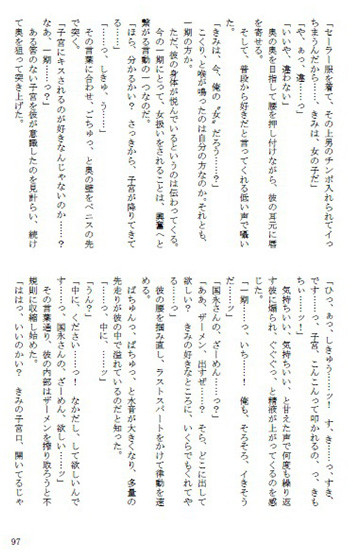 「セーラー服着て、その上男のチンポ入れられてイっ
ちまうんだから……、きみは、女の子だ」
「や、ぁっ、違……っ」
「いいや、違わない」
奥の奥を目指して腰を押し付けながら、彼の耳元に唇
を寄せる。
そして、普段から好きだと言ってくれる低い声で囁い
た。
「きみは、今、俺の〝女〟だろう……？」
こくり、と喉が鳴ったのは自分の方なのか。それとも、
一期の方か。
ただ、彼の身体が悦んでいるというのは伝わってくる。
今の一期にとって、女扱いをされることは、興奮へと
繋がる言動の一つなのだ。
「ほら、分かるかい？　さっきから、子宮が降りてきて
る……」
「……っ、しきゅ、う……」
その言葉に合わせ、ごちゅっ、と奥の壁をペニスの先
で突く。
「子宮にキスされるのが好きなんじゃないのか……？
なあ、一期……っ？」
ある筈のない子宮を彼が意識したのを見計らい、続け
て奥を狙って突き上げた。
「ひっ、ぁっ、しきゅう……ッ！　す、き……っ、すき、
です……っ、子宮、こんこんって叩かれるの、っ、きも
ちぃ……ッ！」
気持ちいい、気持ちいい、と甘えた声で何度も繰り返
す彼に煽られ、ぐぐぐっ、と精液が上がってくるのを感
じた。
「一期……っ、いち……！　俺も、そろそろ、イきそう
だ……ッ」
「国永さんの、ざーめん……っ？」
「ああ、ザーメン、出すぜ……？　そら、どこに出して
欲しい？　きみの好きなところに、いくらでもくれてや
る……っ」
彼の腰を掴み直し、ラストスパートをかけて律動を速
める。
ぱちゅんっ、ぱちゅっ、と水音が大きくなり、多量の
先走りが彼の中で溢れているのだと知った。
「……っ、中に、……ッ」
「うん？」
「中に、ください……っ！　なかだし、して欲しいんで
す……っ、国永さんの、ざーめん、欲しい……ッ」
その言葉通り、彼の内部はザーメンを搾り取ろうと不
規則に収縮し始めた。
「ははっ、いいのかい？　きみの子宮口、開いてるじゃ
97